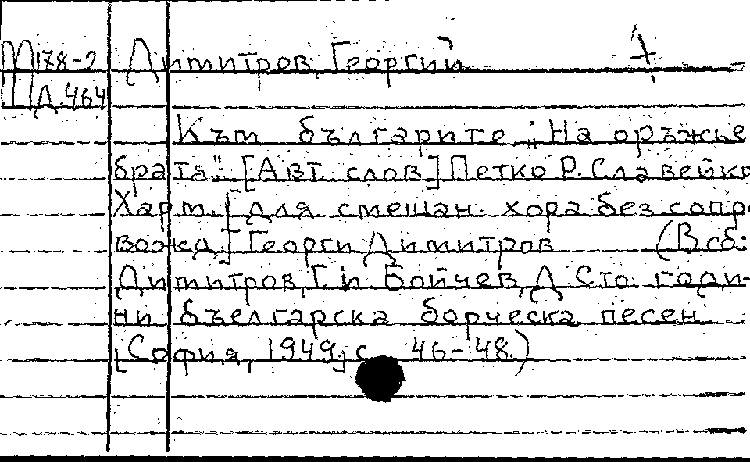 П178-2 Димитров, Георгий
Д.464
Към българите „На оръжье
брата". [Авт. слов.] Петко Р. Славейко
Харм. [для смешан. хора без сопро
вожд.] Георги Димитров (В сб:
Димитров, Г. и Бойчев, Д Сто годи-
ни бъелгарска борческа песен
[София, 1949], с. 46-48.)